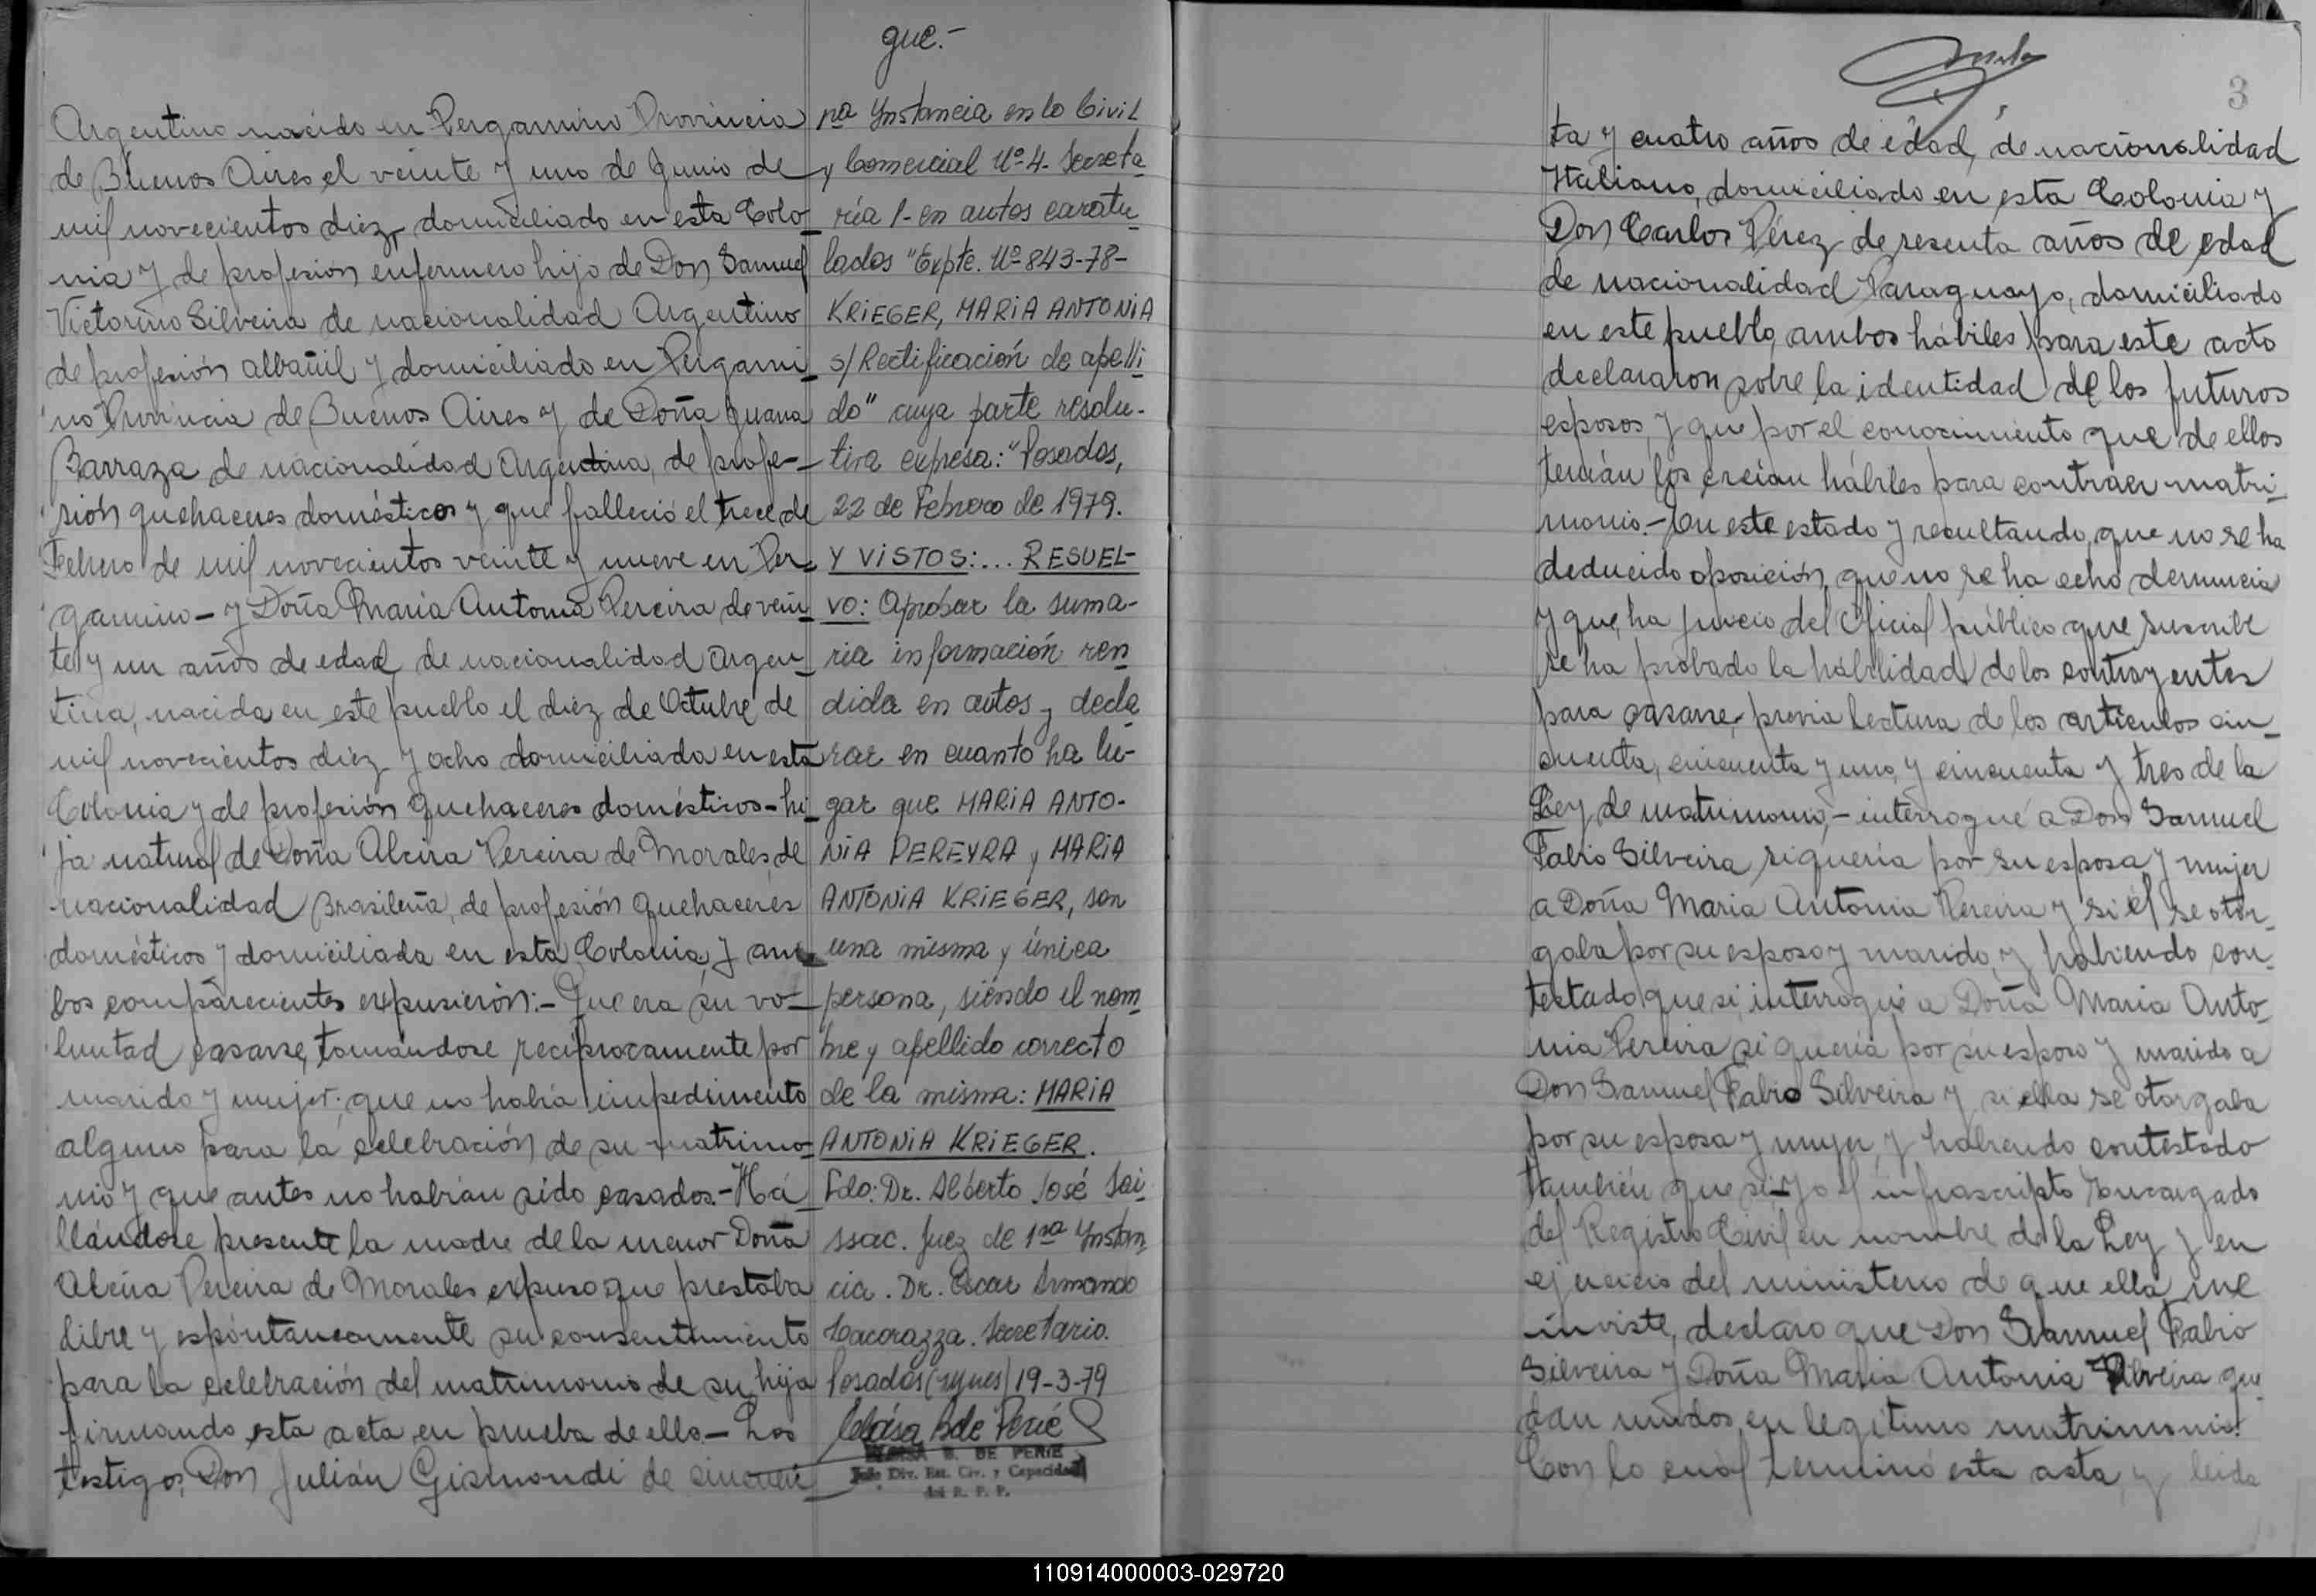 Argentino nacido en Pergamino Provincia
de Buenos Aires el veinte y uno de Junio de
mil novecientos diez, domiciliado en esta Colo-
nia y de profesión enfermero hijo de Don Samuel
Victorino Silveira de nacionalidad Argentino
de profesión albañil y domiciliado en Pergami-
no Provincia de Buenos Aires y de Doña Juana
Barraza de nacionalidad Argentina, de profe-
sión quehaceres domésticos y que falleció el trece de
Febrero de mil novecientos veinte y nueve en Per-
gamino - y Doña Maria Antonia Pereira de vein-
te y un años de edad, de nacionalidad Argen-
tina, nacida en este pueblo el diez de Octubre de
mil novecientos diez y ocho domiciliada en esta
Colonia y de profesión quehaceres domésticos - hi-
ja natural de Doña Alcira Pereira de Morales, de
nacionalidad Brasileña, de profesión quehaceres
domésticos y domiciliada en esta Colonia, y am-
bos comparecientes expusierón:- Que era su vo-
luntad casarse, tomándose reciprocamente por
marido y mujer: que no había impedimento
alguno para la celebración de su matrimo-
nio y que antes no habían sido casados.- Ha-
llándose presente la madre de la menor Doña
Alcira Pereira de Morales expuso que prestaba
libre y espóntaneamente su consentimiento
para la celebración del matrimonio de su hija
firmando esta acta en prueba de ello - Los
testigos, Don Julián Gismondi de cincuen
que.-
na Ynstancia en lo Civil
y Comercial Nº 4. Secreta-
ría 1- en autos caratu-
lados "Expte. Nº 843-78-
KRIEGER, MARIA ANTONIA
s/ Rectificación de apelli-
do" cuya parte resolu-
tiva expresa: "Posadas,
22 de Febrero de 1979.
Y VISTOS:... RESUEL-
VO: Aprobar la suma-
ria información ren-
dida en autos y decla-
rar en cuanto ha lu-
gar que MARIA ANTO-
NIA PEREYRA y MARIA
ANTONIA KRIEGER, son
una misma y única
persona, siéndo el nom-
bre y apellido correcto
de la misma: MARIA
ANTONIA KRIEGER.
Fdo: Dr. Alberto José Sei-
ssac. Juez de 1ra Ynstan-
cia. Dr. Oscar Armando
Cacorazza. Secretario.
Posadas (Mnes) 19-3-79
Eloisa B de Perié
ELOISA B. DE PERIE
Jefe Div. Est. Civ. y Capacidad
del R. P. P.
3
ta y cuatro años de edad, de nacionalidad
Italiano, domiciliado en esta Colonia y
Don Carlos Pérez de sesenta años de edad
de nacionalidad Paraguayo, domiciliado
en este pueblo, ambos hábiles para este acto
declararon sobre la identidad de los futuros
esposos, y que por el conocimiento que de ellos
tenián los creían hábiles para contraer matri-
monio.- En este estado y resultando, que no se ha
deducido oposición, que no se ha echo denuncia
y que, ha juicio del Oficial público que suscribe
se ha probado la habilidad de los contrayentes
para casarse, previa lectura de los articulos cin-
cuenta, cincuenta y uno, y cincuenta y tres de la
Ley de matrimonio,- interrogué a Don Samuel
Fabio Silveira si quería por su esposa y mujer
a Doña Maria Antonia Pereira y si él se otor-
gaba por su esposo y marido, y habiendo con-
testado que si, interrogué a Doña Maria Anto-
nia Pereira si quería por su esposo y marido a
Don Samuel Fabio Silveira y si ella se otorgaba
por su esposa y mujer, y habiendo contestado
también que si,- yo el infrascripto Encargado
del Registro Civil en nombre de la Ley y en
ejercicio del ministerio de que ella me
inviste, declaro que Don Samuel Fabio
Silveira y Doña Maria Antonia Pereira que-
dan unidos en legítimo matrimonio.
Con lo cual terminó esta acta, y leida
110914000003-029720